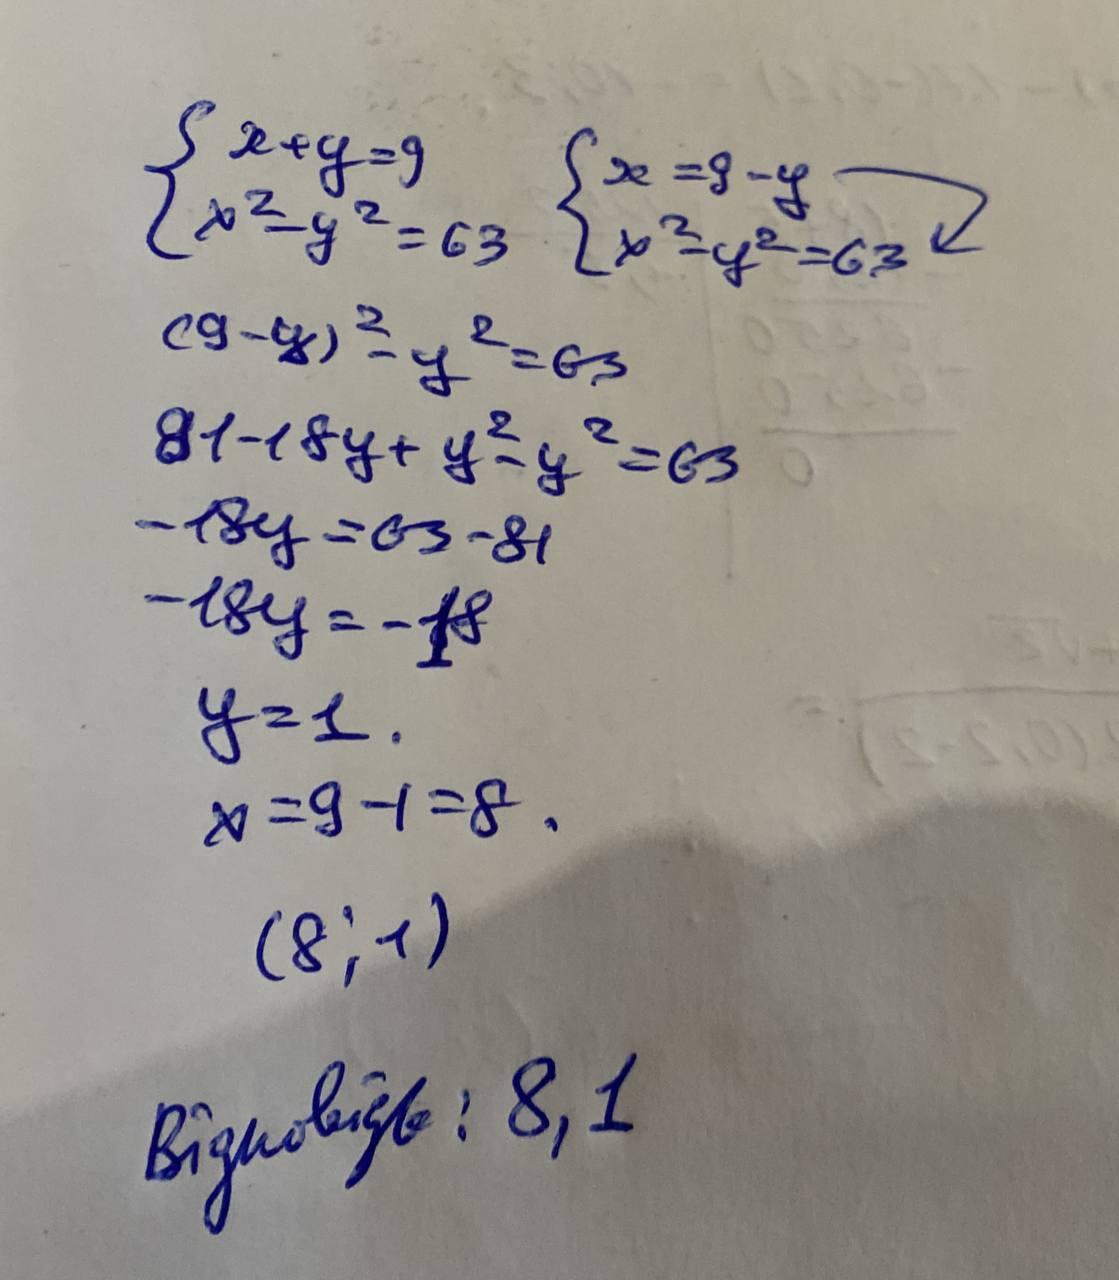 { x+y=9 { x=9-y
x²-y²=63 x²-y²=63
(9-y)²-y²=63
81-18y+y²-y²=63
-18y=63-81
-18y=-18
y=1.
x=9-1=8.
(8;1)
Відповідь: 8,1